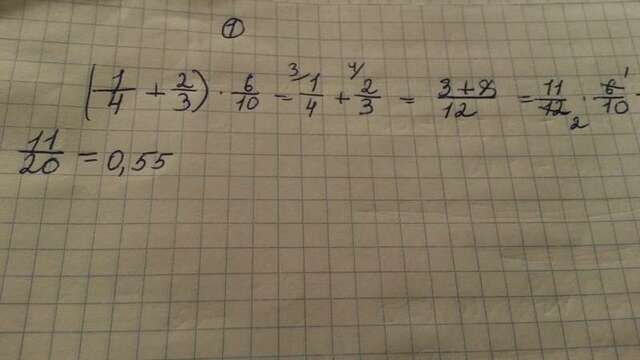 ①
(1/4 + 2/3) · 6/10 = ³⁄1/4 + ⁴⁄2/3 = 3+8/12 = 11/12 2 · 6/10 1
11/20 = 0,55